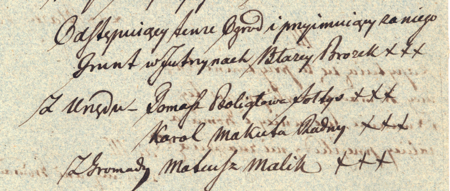 Odstępuiący tenże Ogrod i przyimuiący za niego
Grunt w Jutrynach Błazey Brozek +++
Z Urzędu – Tomasz Soltys +++
Karol Makuta Radny +++
Z Gromady Mateusz Malik +++